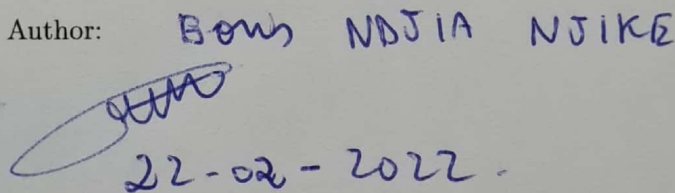 Author: Boris NDJIA NJIKE
22-02-2022.